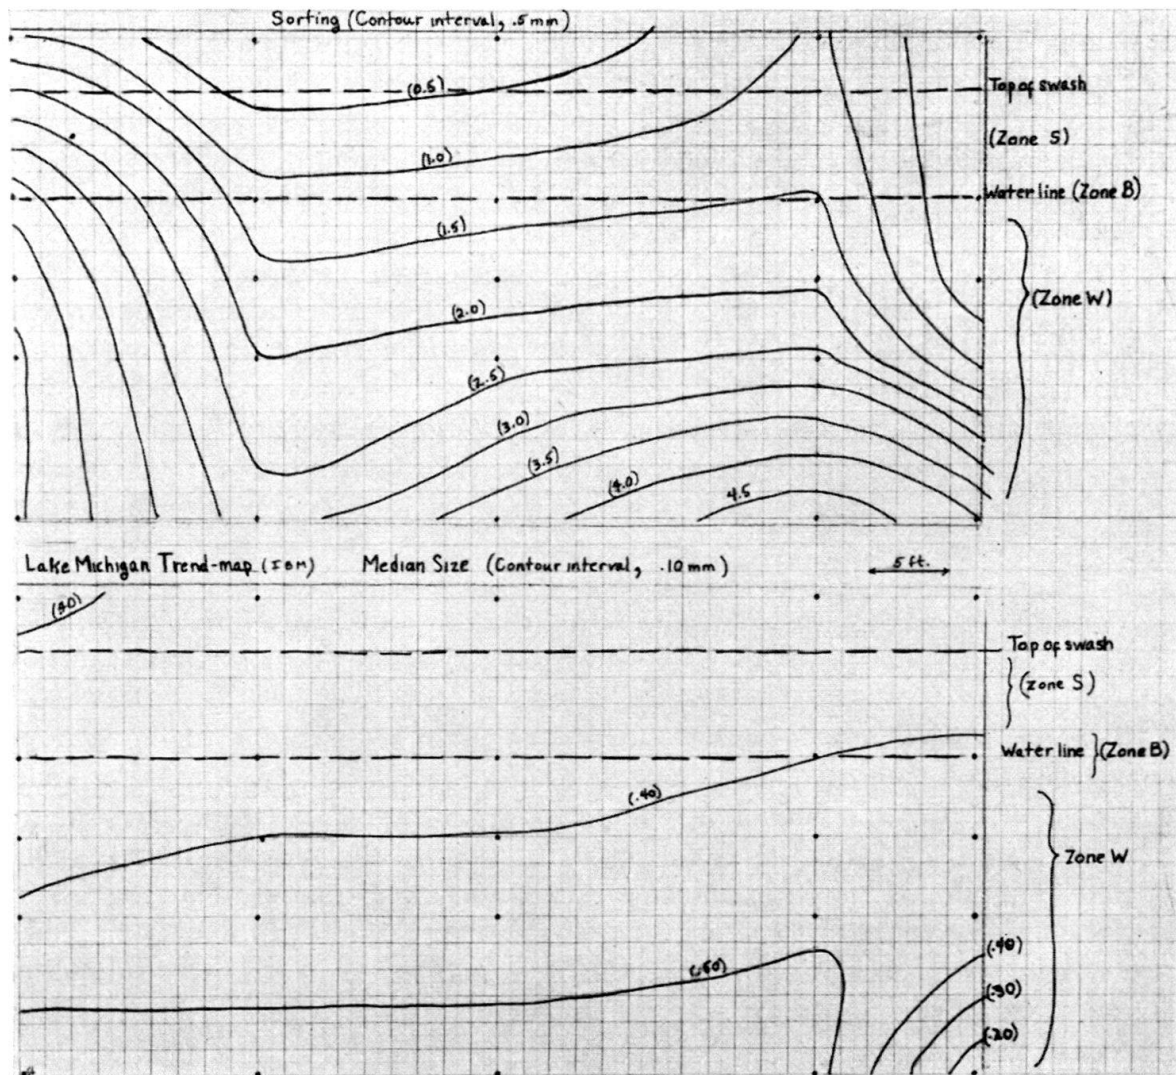 Sorting (Contour interval, .5 mm)
(0.5)
Top of swash
(1.0)
(Zone S)
Water line (Zone B)
(1.5)
(2.0)
(Zone W)
(2.5)
(3.0)
(3.5)
(4.0)
4.5
Lake Michigan Trend-map (IBM) Median Size (Contour interval, .10 mm)
5 ft.
Top of swash
(zone S)
Water line (Zone B)
(.40)
Zone W
(.40)
(.30)
(.20)